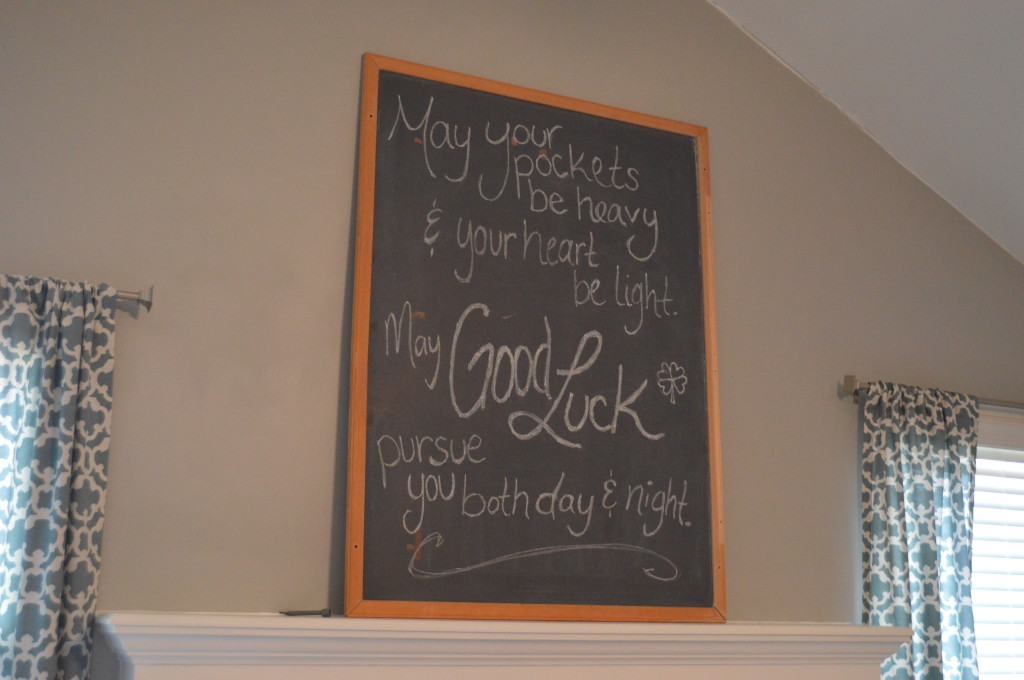 May your
pockets
be heavy
& your heart
be light.
May Good Luck
pursue
you both day & night.